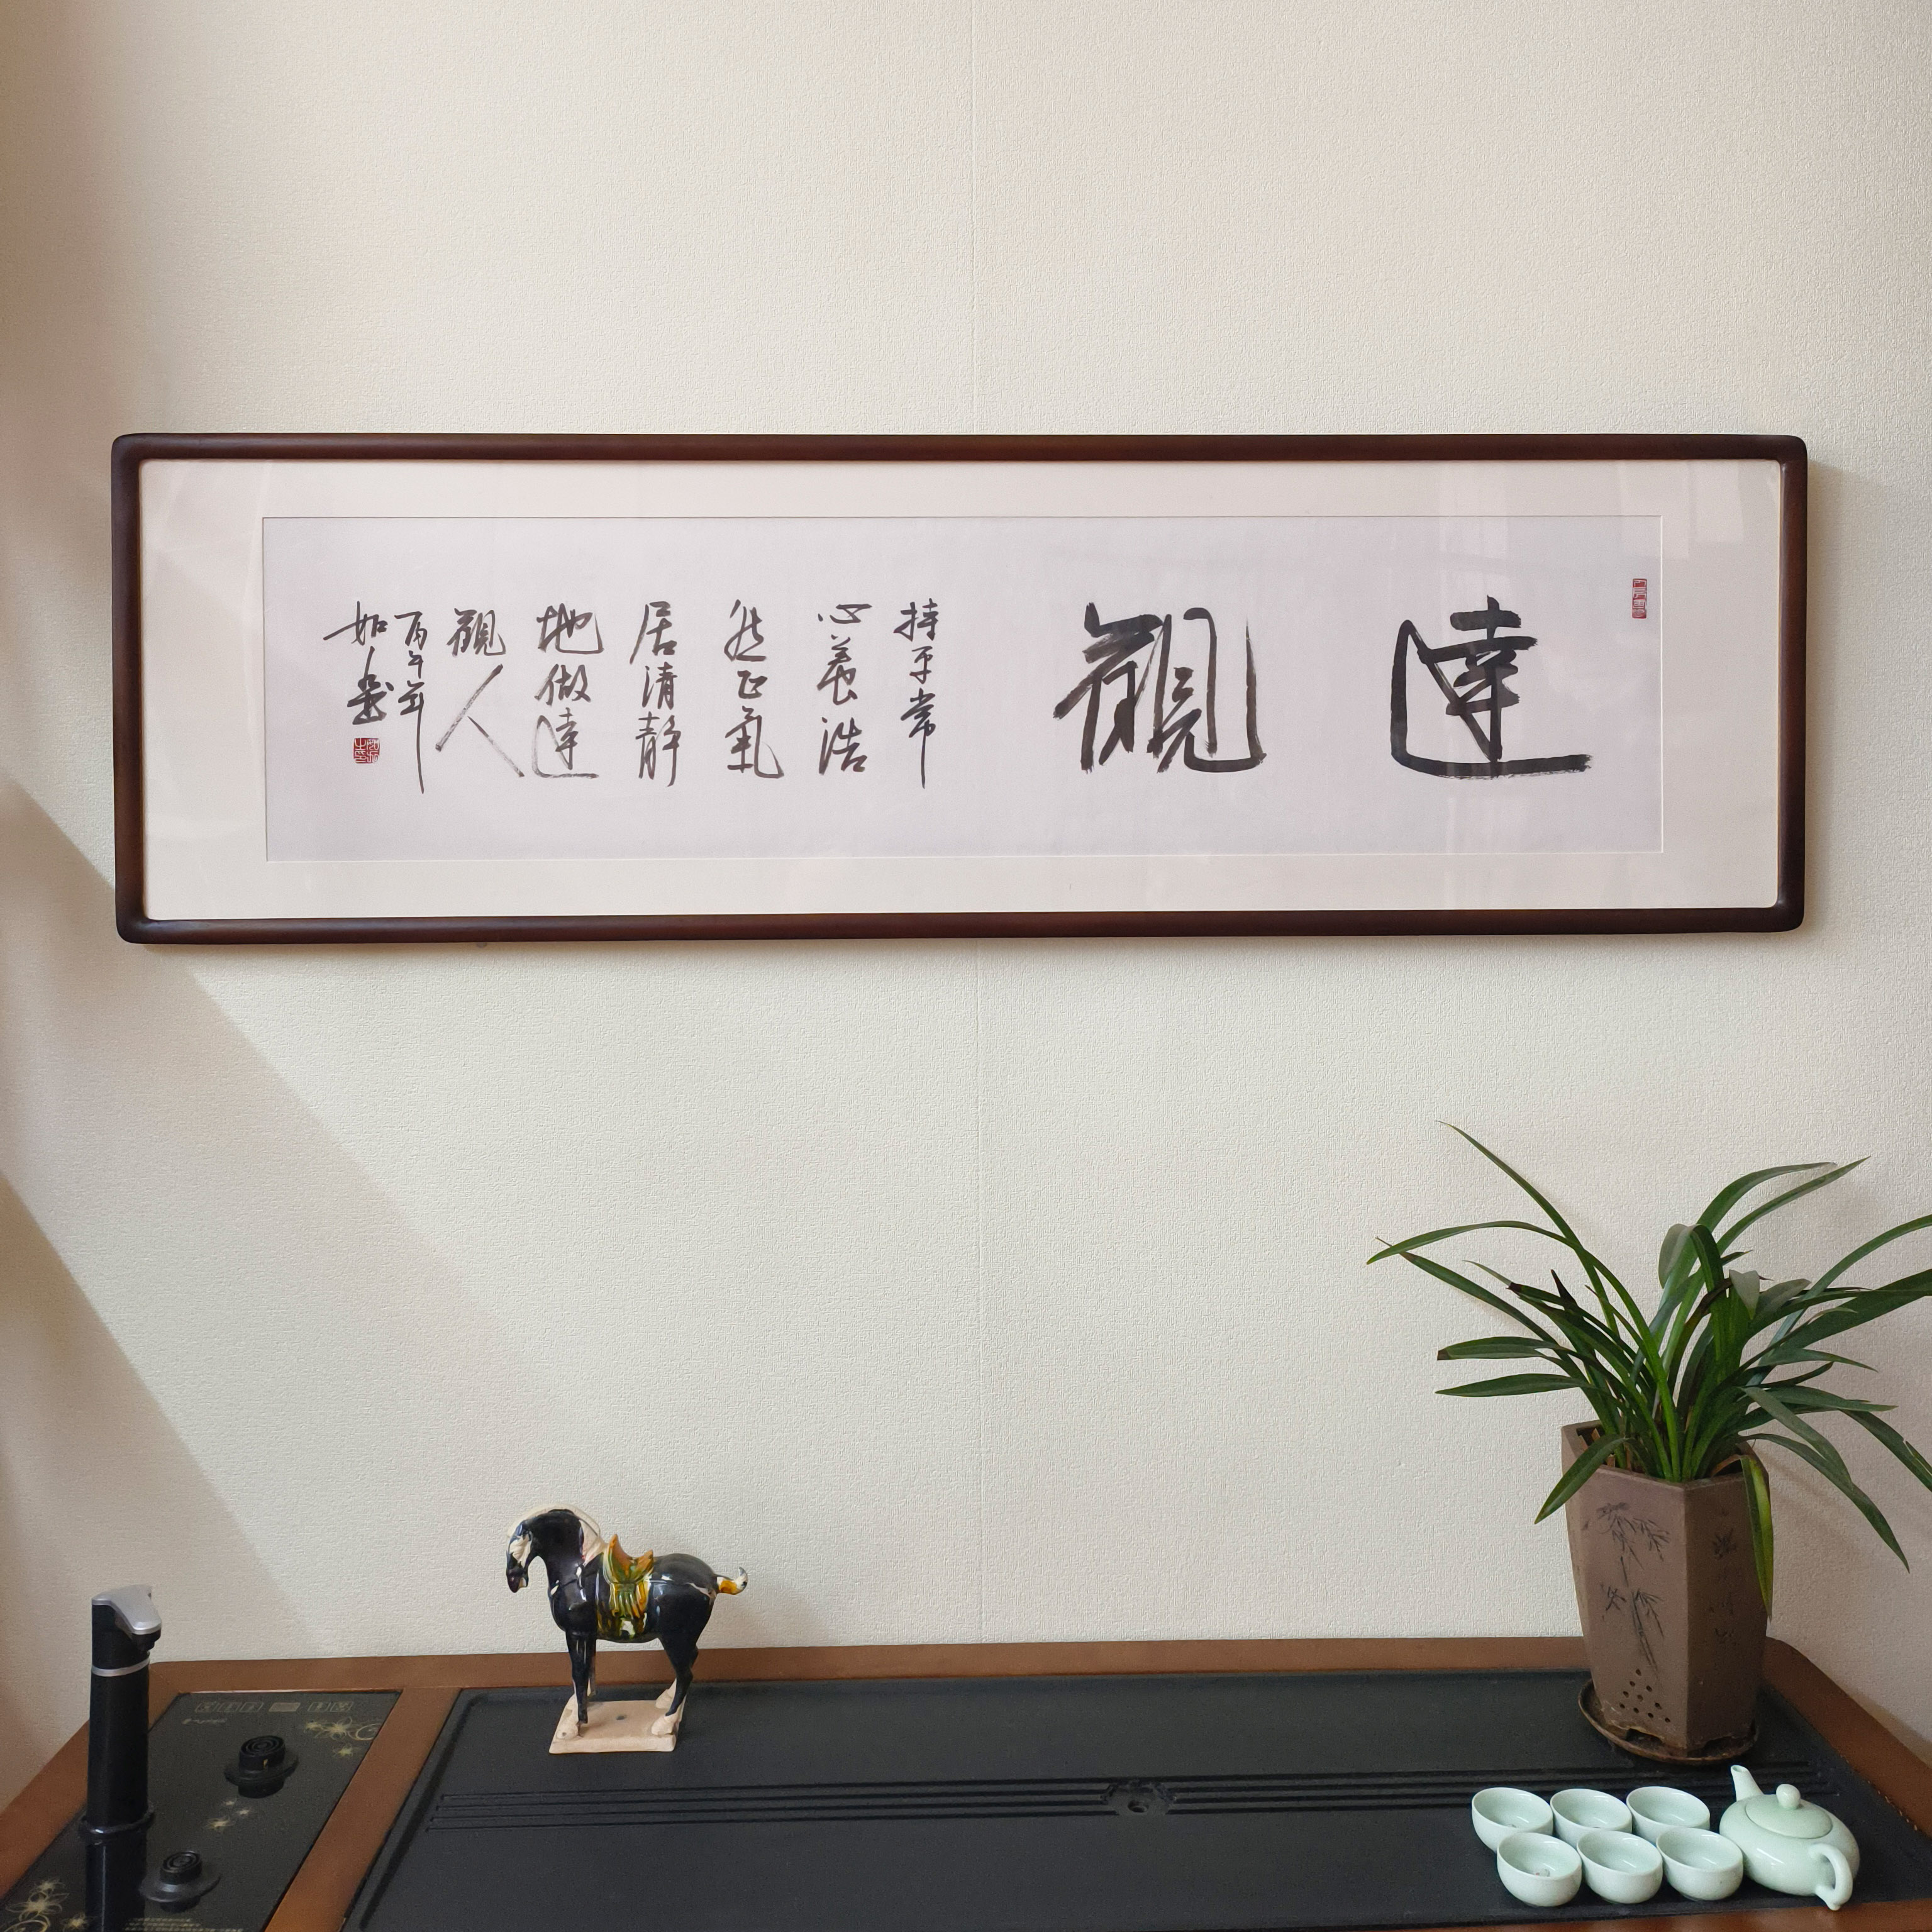 達觀
持平常
心養浩
然正氣
居清靜
地做達
觀人
丙午年
如岳